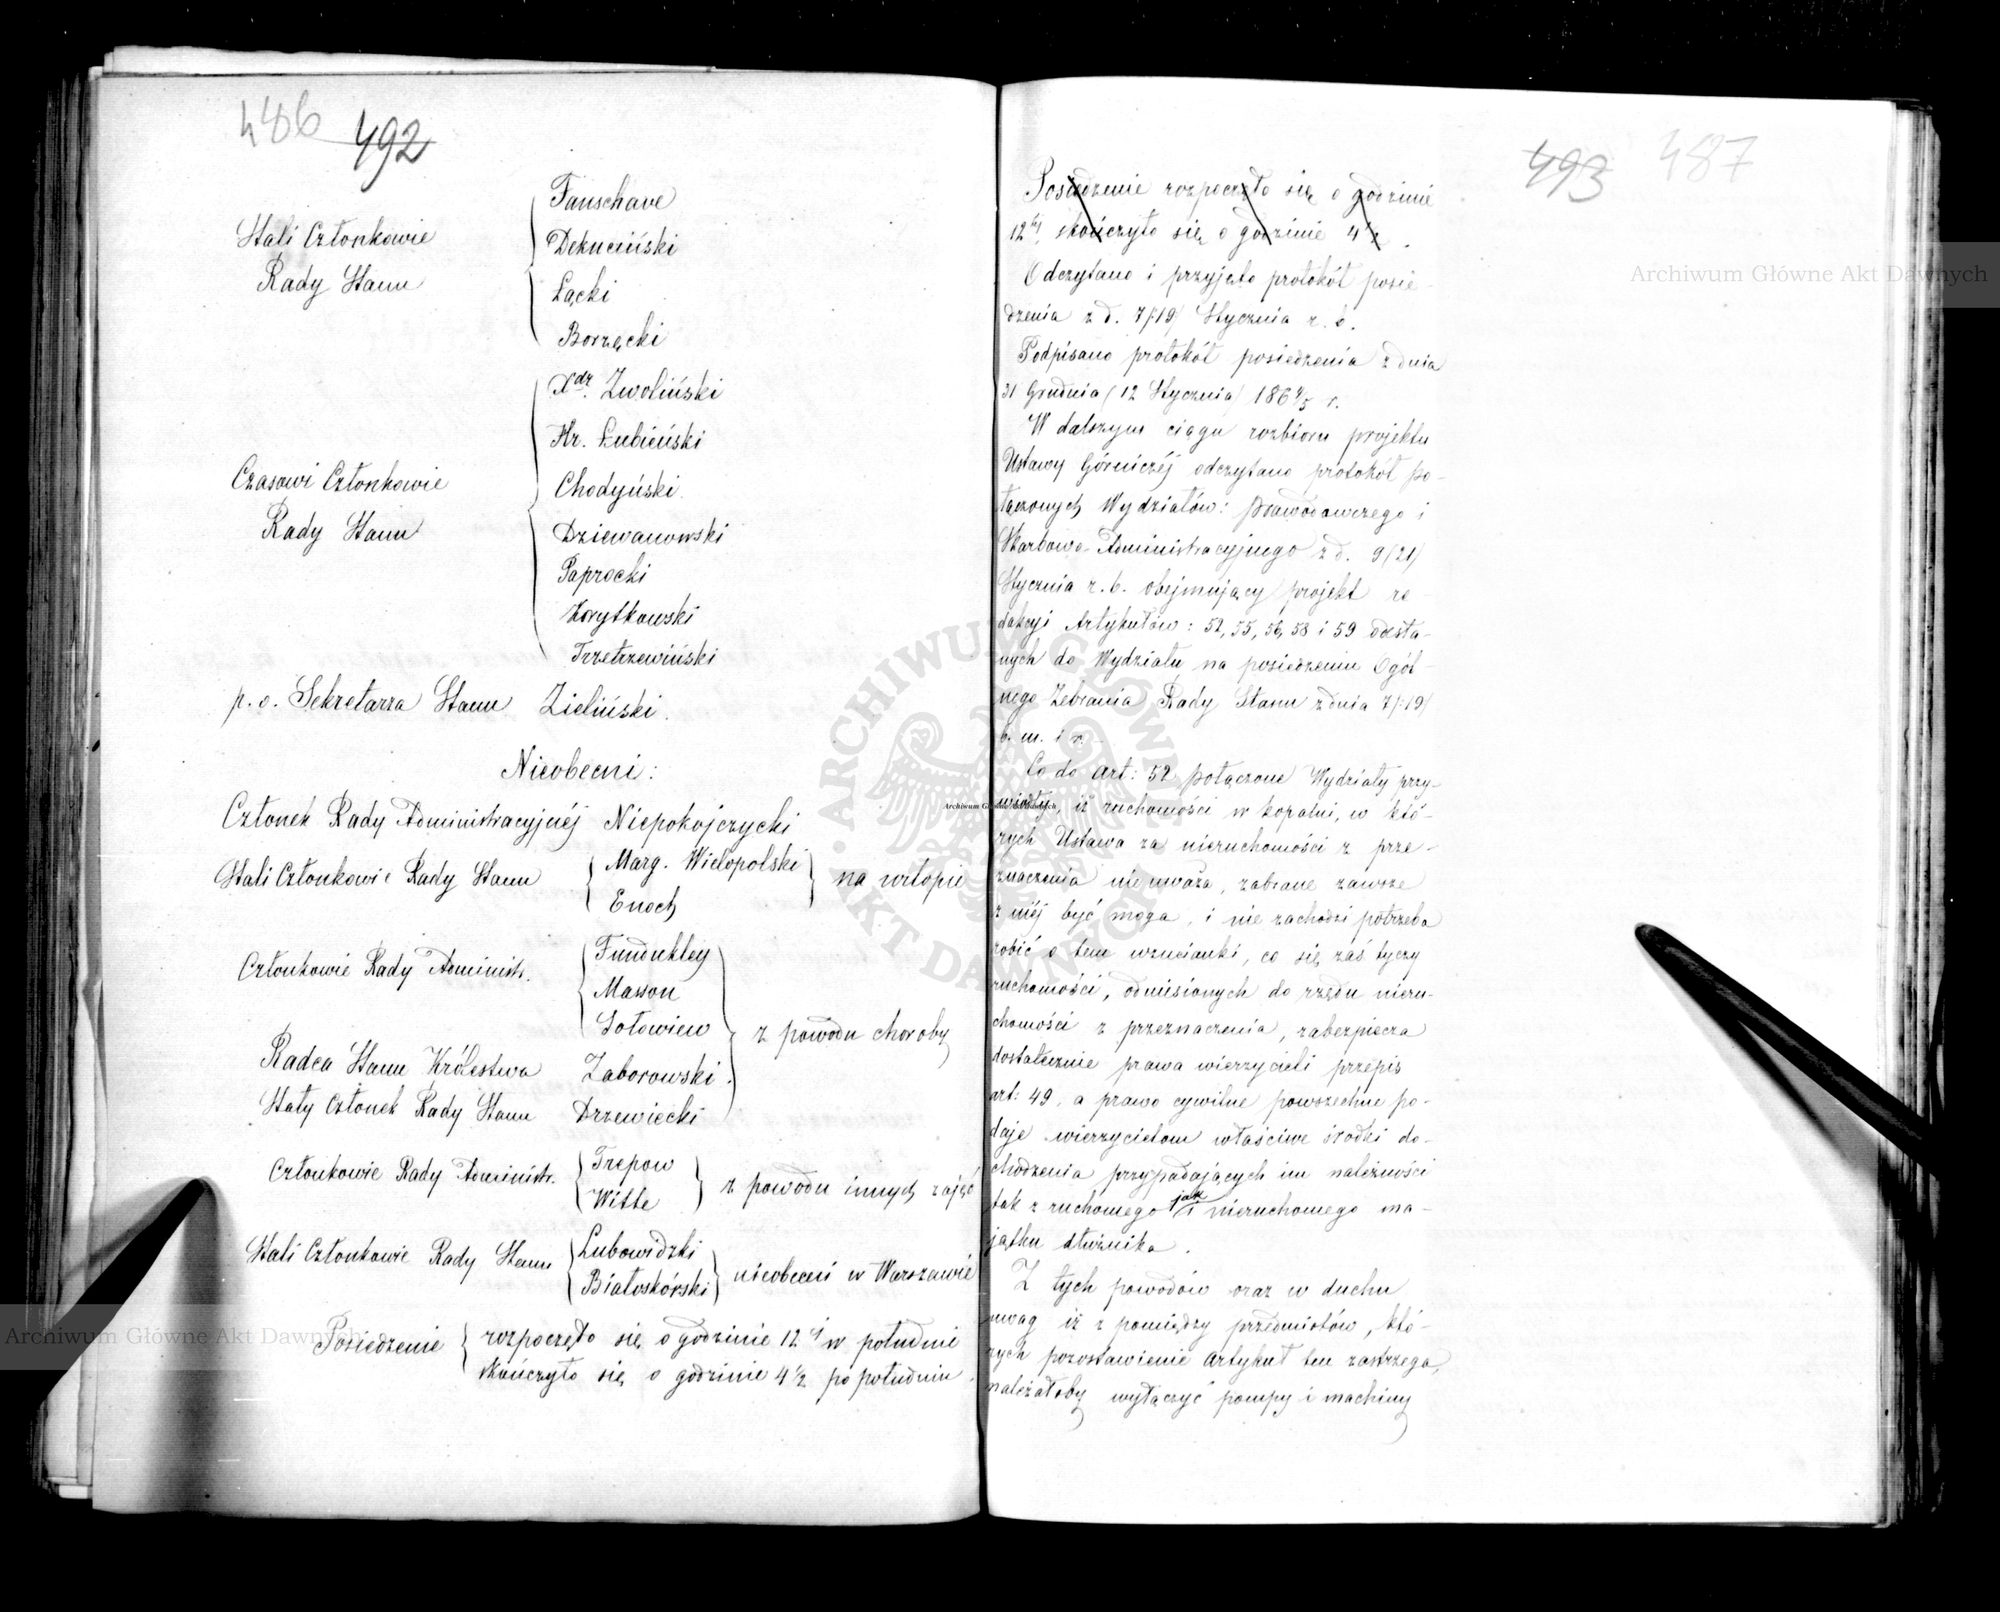 486 492
Stali Członkowie
Rady Stanu
Fanschave
Dekuciński
Łącki
Borzęcki
Czasowi Członkowie
Rady Stanu
Xdz. Zwoliński
Hr. Łubieński
Chodyński.
Dziewanowski
Paprocki
Korytkowski
Trzetrzewiński
p. o. Sekretarza Stanu Zieliński.
Nieobecni:
Członek Rady Administracyjnéj Niepokójczycki
Stali Członkowie Rady Stanu
Marg. Wielopolski
Enoch
na urlopie
Członkowie Rady Administr.
Fundukley
Masson
Sołowiew
Radca Stanu Królestwa Zaborowski.
Stały Członek Rady Stanu Drzewiecki
z powodu choroby
Członkowie Rady Administr.
Trepow
Witte
z powodu innych zajęć
Stali Członkowie Rady Stanu
Lubowidzki
Białoskórski
nieobecni w Warszawie
Posiedzenie
rozpoczęto się o godzinie 12éj w południe
skończyło się o godzinie 4 1/2 po południu.
493 487
Posiedzenie rozpoczęto się o godzinie
12éj, skończyło się o godzinie 4 1/2.
Odczytano i przyjęto protokół posie-
dzenia z d. 7/19/ Stycznia r. b.
Podpisano protokół posiedzenia z dnia
31 Grudnia (12 Stycznia) 186 4/5 r.
W dalszym ciągu rozbioru projektu
Ustawy Górniczéj odczytano protokół po-
łączonych Wydziałów: Prawodawczego i
Skarbowo-Administracyjnego z d. 9/21/
Stycznia r. b. obejmujący projekt re-
dakcyi Artykułów: 52, 55, 56, 58 i 59 odesła-
nych do Wydziału na posiedzeniu Ogól-
nego Zebrania Rady Stanu z dnia 7/19/
b. m. i r.
Co do art: 52 połączone Wydziały przy-
wiodły, iż ruchomości w kopalni, w któ-
rych Ustawa za nieruchomości z prze-
znaczenia nie uważa, zabrane zawsze
z niéj być mogą, i nie zachodzi potrzeba
robić o tem wzmianki, co się zaś tyczy
ruchomości, odniesionych do rzędu nieru-
chomości z przeznaczenia, zabezpiecza
dostatecznie prawa wierzycieli przepis
art: 49, a prawo cywilne powszechne po-
daje wierzycielom właściwe środki do-
chodzenia przypadających im należności
tak z ruchomego jak i nieruchomego ma-
jątku dłużnika.
Z tych powodów oraz w duchu
uwag iż z pomiędzy przedmiotów, któ-
rych pozostawienie artykuł ten zastrzega,
należałoby wyłączyć pompy i machiny
Archiwum Główne Akt Dawnych
Archiwum Główne Akt Dawnych
Archiwum Główne Akt Dawnych
ARCHIWUM GŁÓWNE · AKT DAWNYCH ·